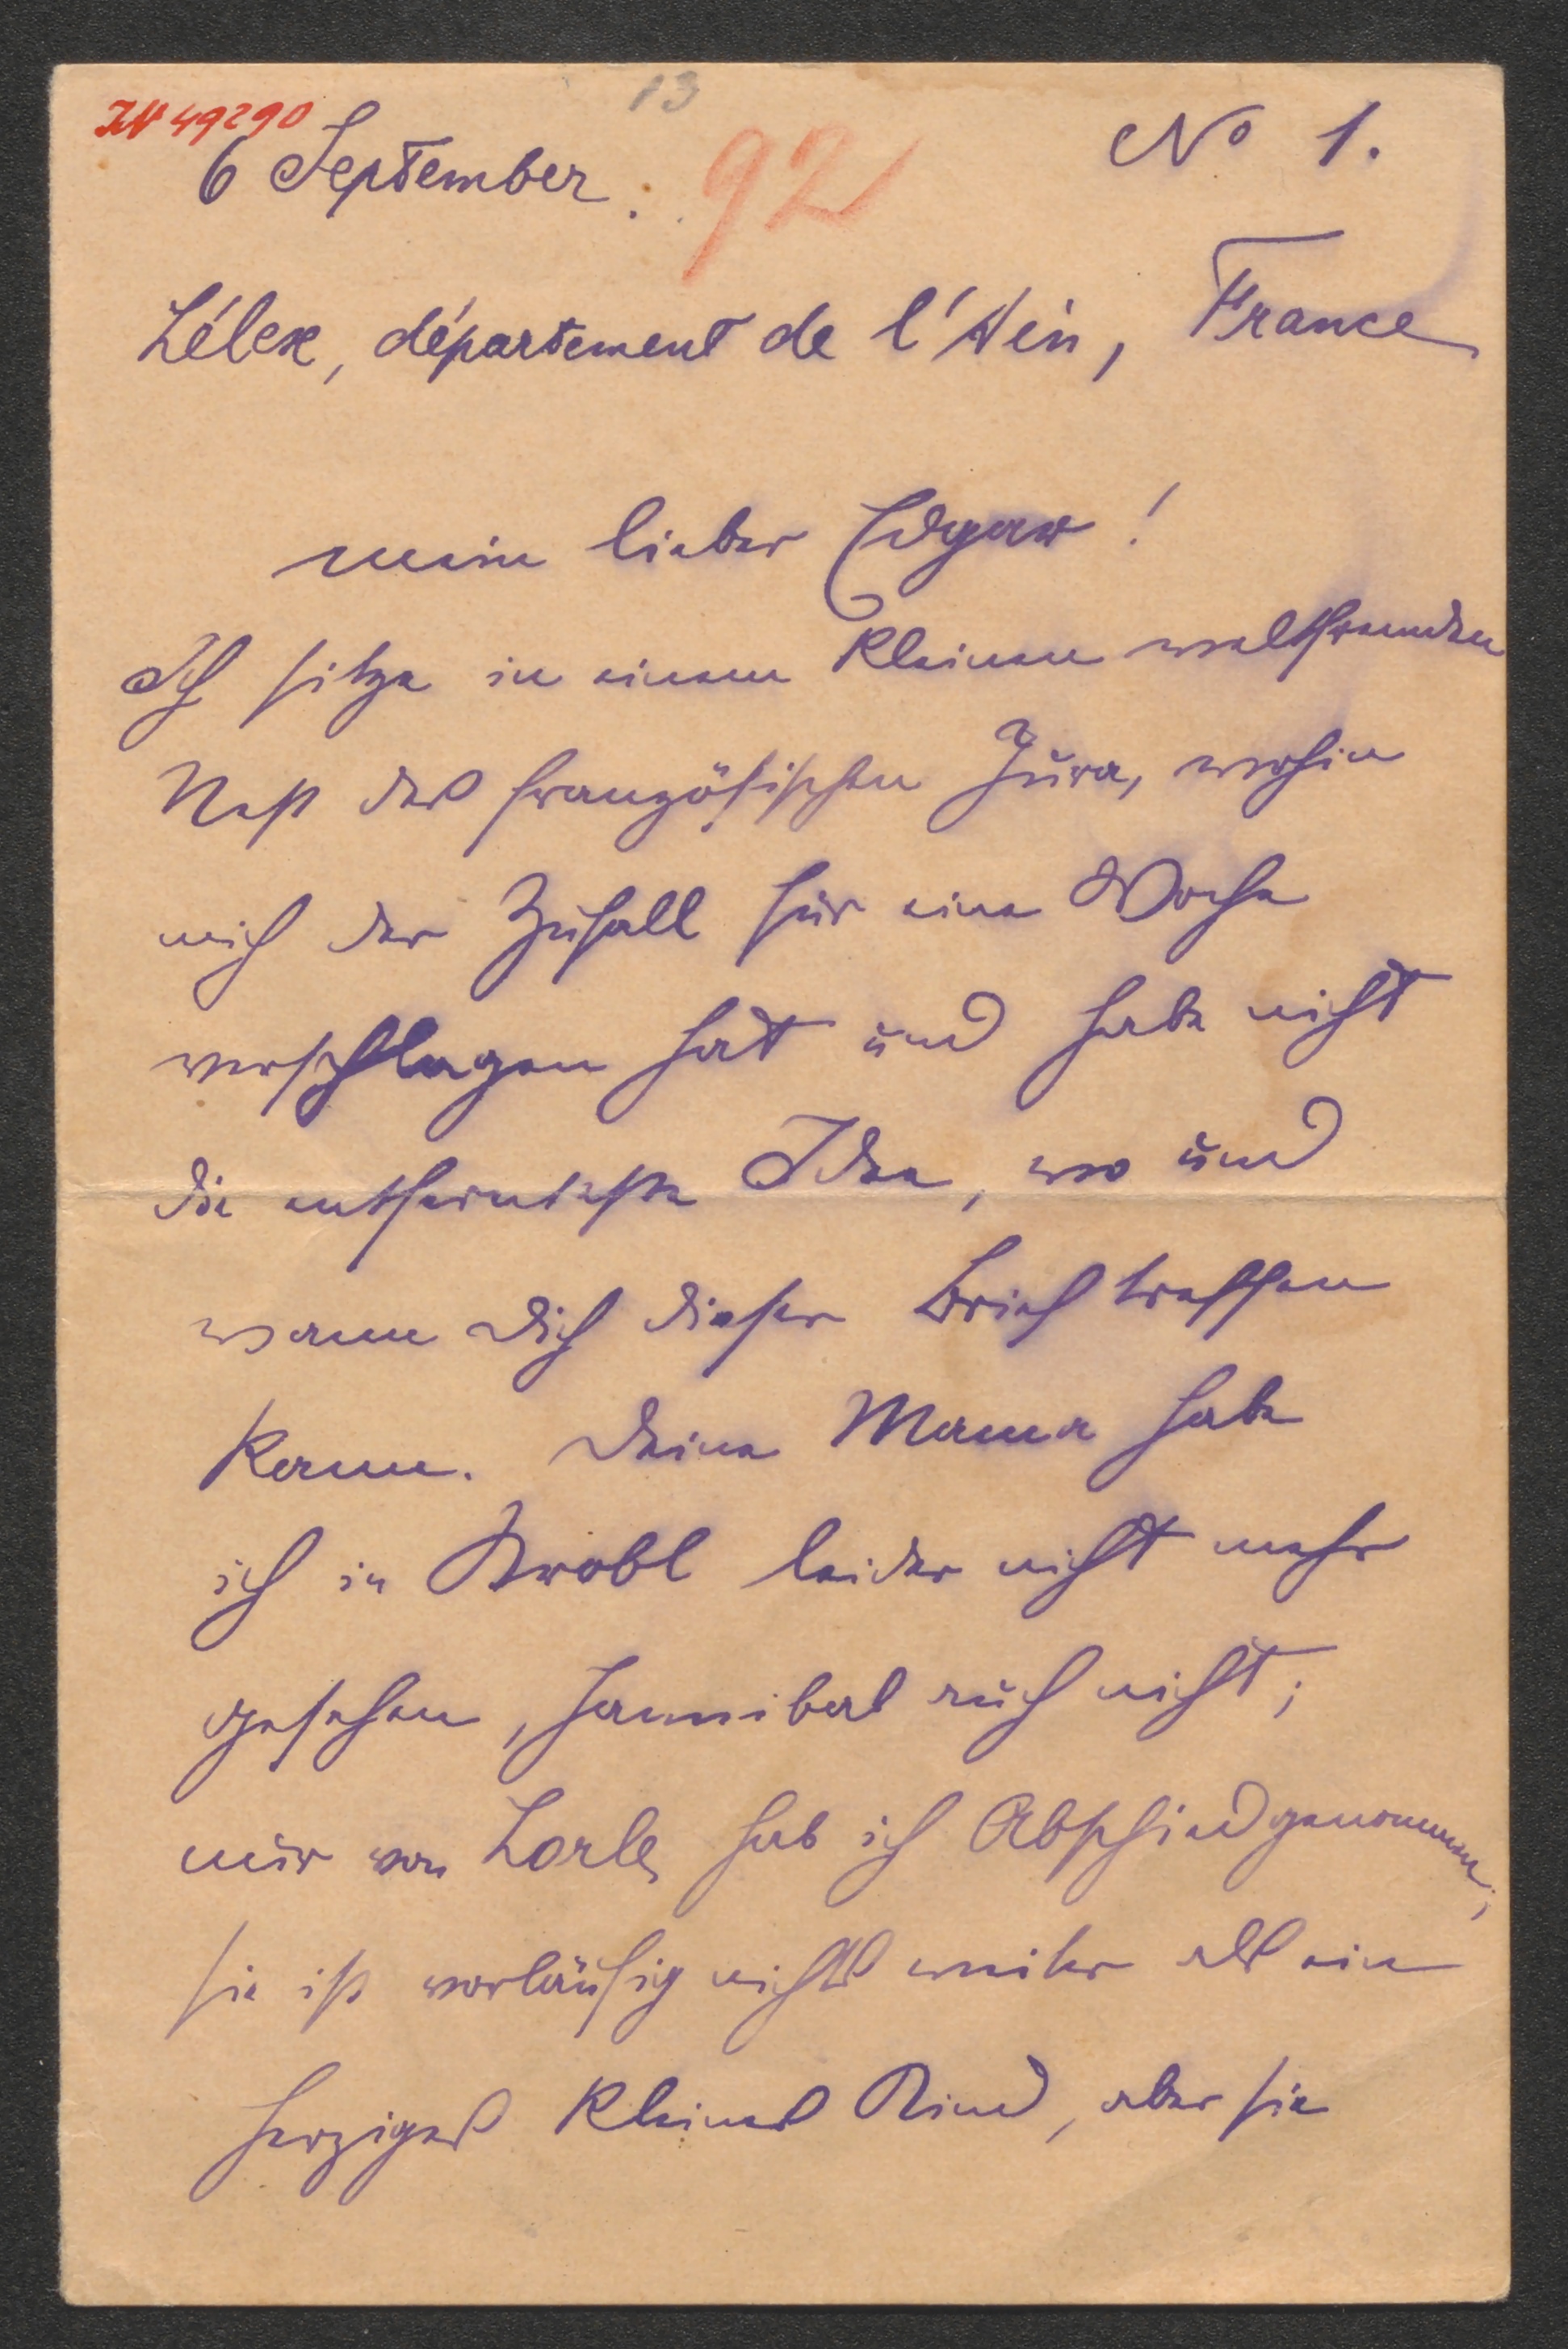 IN 49290
13
6 September. 92
No 1.
Lélex, département de l'Ain, France
mein lieber Edgar!
Ich sitze in einem kleinen weltfremden
Nest des französischen Jura, wohin
mich der Zufall für eine Woche
verschlagen hat und habe nicht
die entfernteste Idee, wo und
wann Dich dieser Brief treffen
kann. Deine Mama habe
ich in Strobl leider nicht mehr
gesehen, Hannibal auch nicht;
nur von Lorle hab ich Abschied genommen;
sie ist vorläufig nichts weiter als ein
herziges kleines Kind, aber sie